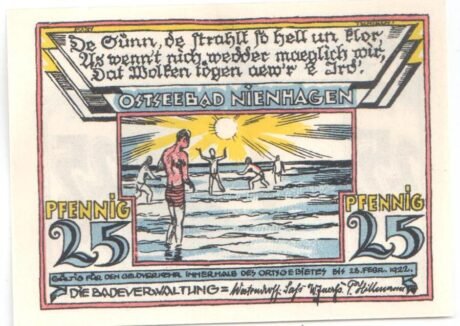 De Sünn, de strahlt so hell un klor,
As wenn't nich wedder maeglich wir,
Dat Wolken tögen aew'r d' Ird!
OSTSEEBAD NIENHAGEN
PFENNIG
25
PFENNIG
25
GÜLTIG FÜR DEN GELDVERKEHR INNERHALB DES ORTSGEBIETES BIS 28. FEBR. 1922.
DIE BADEVERWALTUNG =